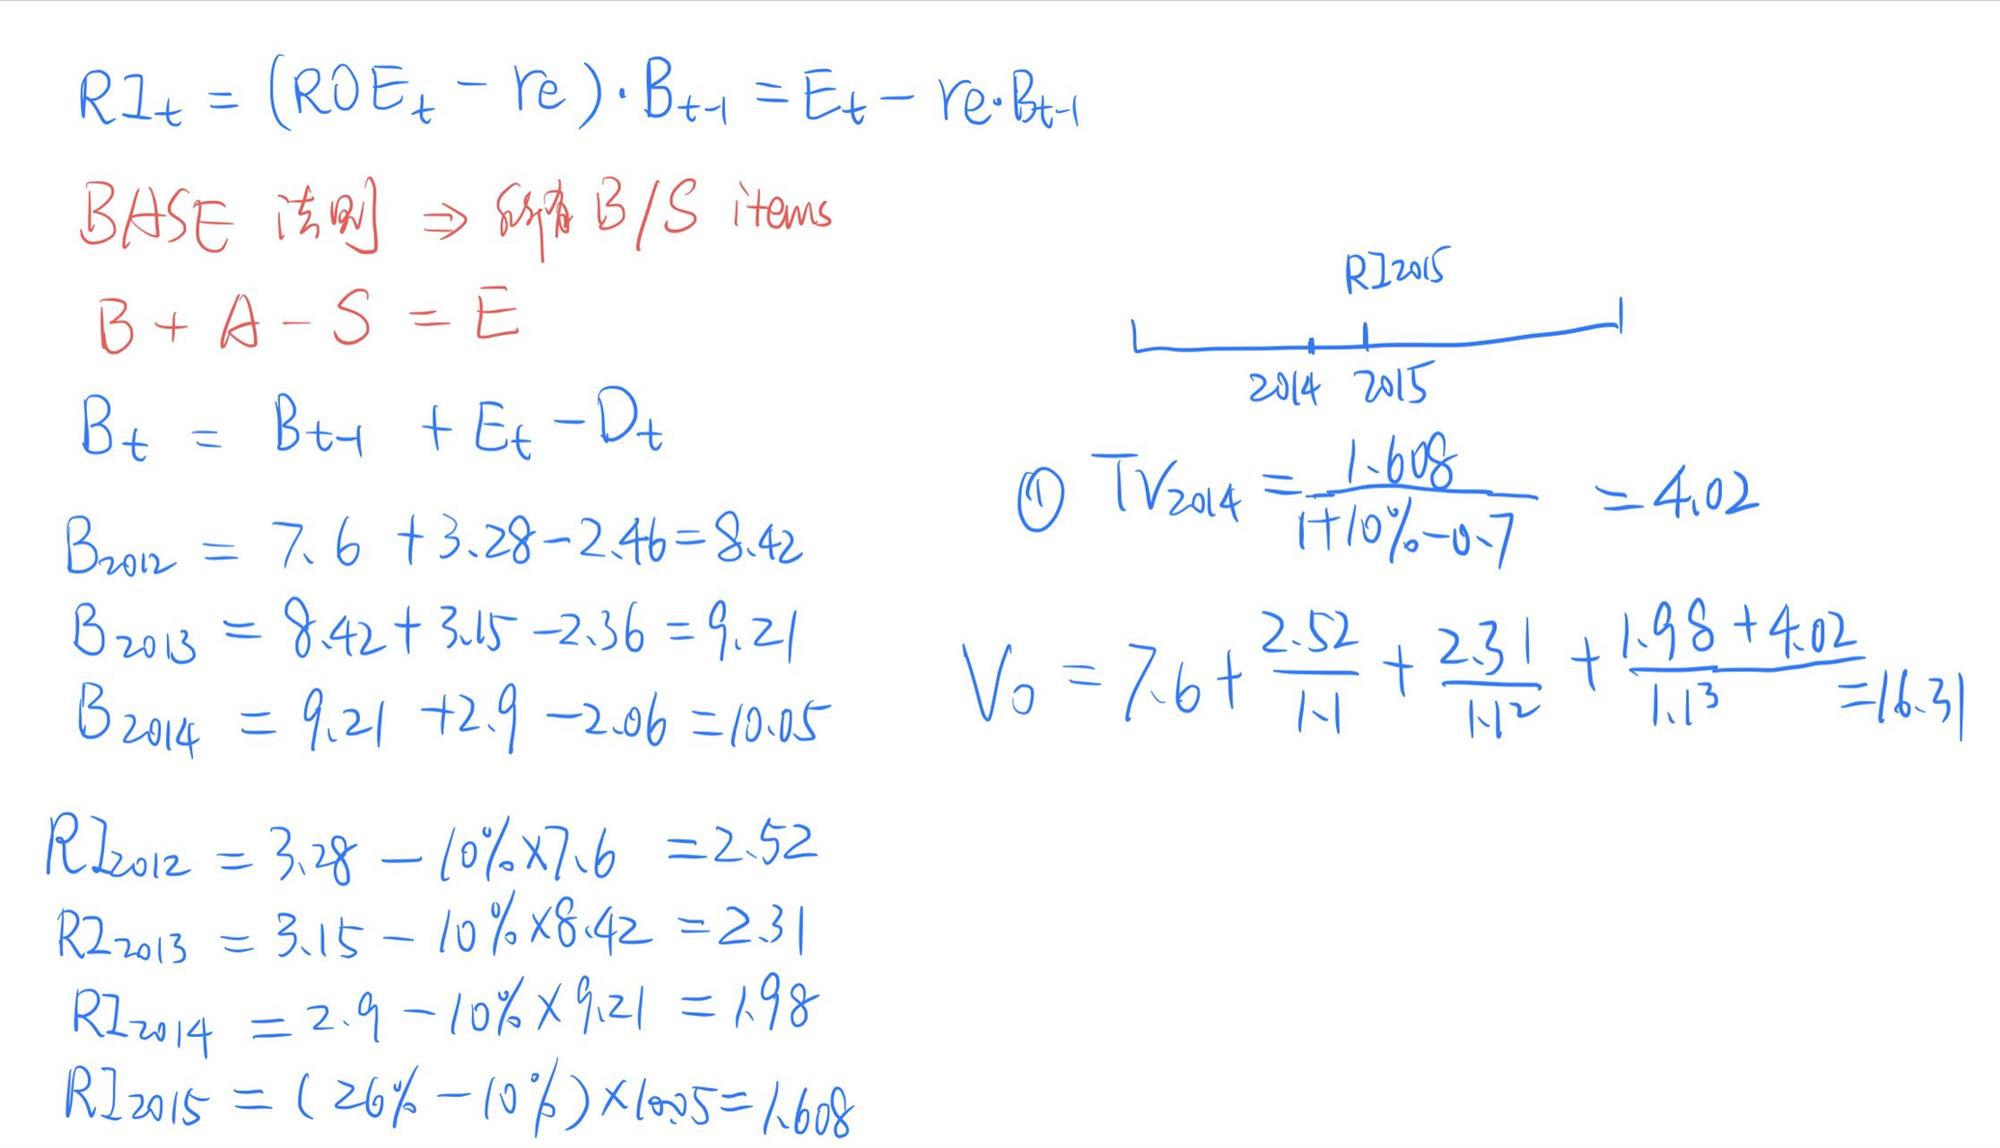 RI_t = (ROE_t - re)·B_{t-1} = E_t - re·B_{t-1}
BASE 法则 ⇒ 所有 B/S items
B + A - S = E
B_t = B_{t-1} + E_t - D_t
B_2012 = 7.6 + 3.28 - 2.46 = 8.42
B_2013 = 8.42 + 3.15 - 2.36 = 9.21
B_2014 = 9.21 + 2.9 - 2.06 = 10.05
RI_2012 = 3.28 - 10% × 7.6 = 2.52
RI_2013 = 3.15 - 10% × 8.42 = 2.31
RI_2014 = 2.9 - 10% × 9.21 = 1.98
RI_2015 = (26% - 10%) × 10.05 = 1.608
RI_2015
2014 2015
① TV_2014 = 1.608 / (1+10%-0.7) = 4.02
V_0 = 7.6 + 2.52/1.1 + 2.31/1.1² + (1.98+4.02)/1.1³ = 16.31